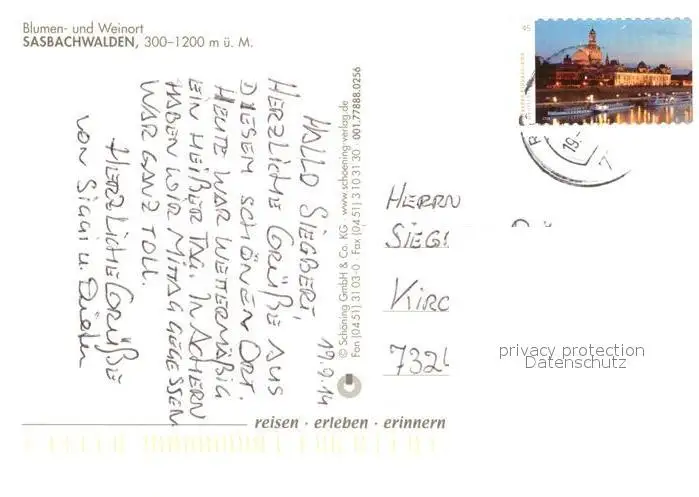 Blumen- und Weinort
SASBACHWALDEN, 300–1200 m ü. M.
19.9.14
HALLO SIEGBERT,
HERZLICHE GRÜßE AUS
DIESEM SCHÖNEN ORT.
HEUTE WAR WETTERMÄßIG
EIN HEIßER TAG. IN ACHERN
HABEN WIR MITTAG GEGESSEN
WAR GANZ TOLL.
HERZLICHE GRÜßE
VON SIGGI u. Dieter
© Schöning GmbH & Co. KG · www.schoening-verlag.de
Fon (0451) 3103-0 · Fax (0451) 3103130 · 001.77888.0256
reisen · erleben · erinnern
45
19.
HERRN
SIEG
KIRC
732
privacy protection
Datenschutz